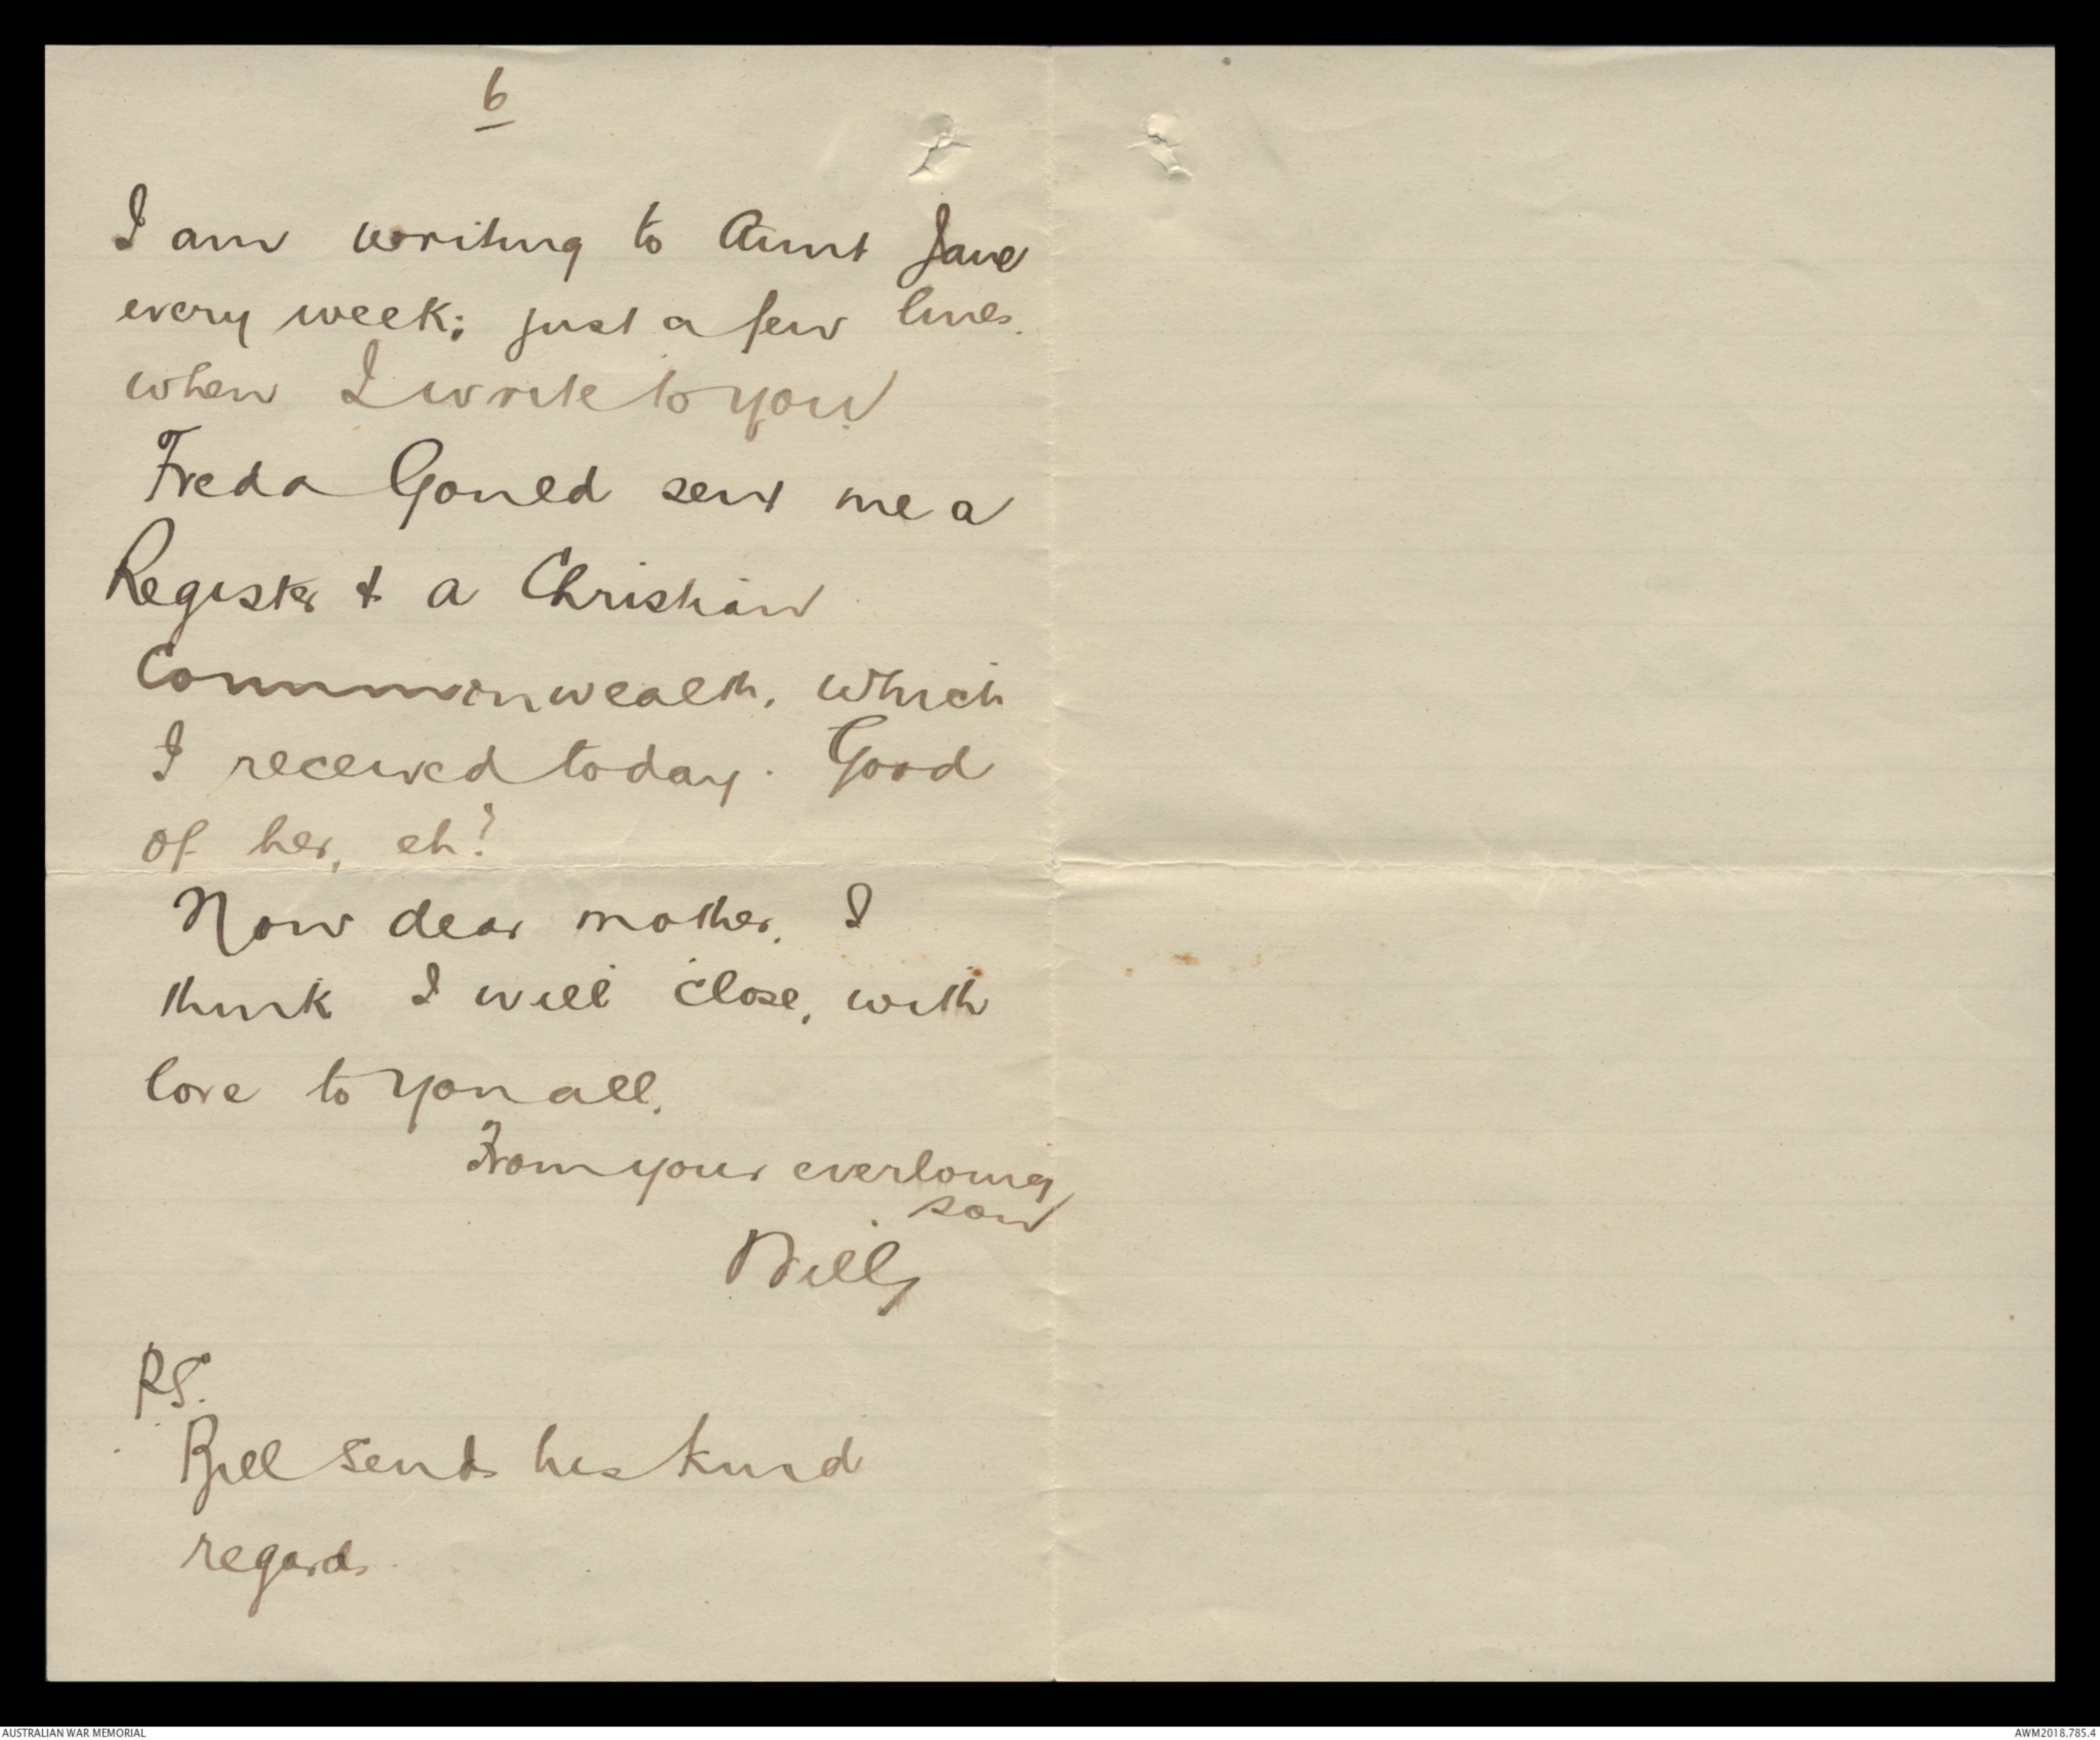 6
I am writing to Aunt Jane
every week; just a few lines.
when I write to you.
Freda Gould sent me a
Register & a Christian
Commonwealth, which
I received today. Good
of her, eh?
Now dear mother, I
think I will close, with
love to you all.
From your everloving
son
Willy
P.S.
Bill sends his kind
regards.
AUSTRALIAN WAR MEMORIAL
AWM2018.785.4